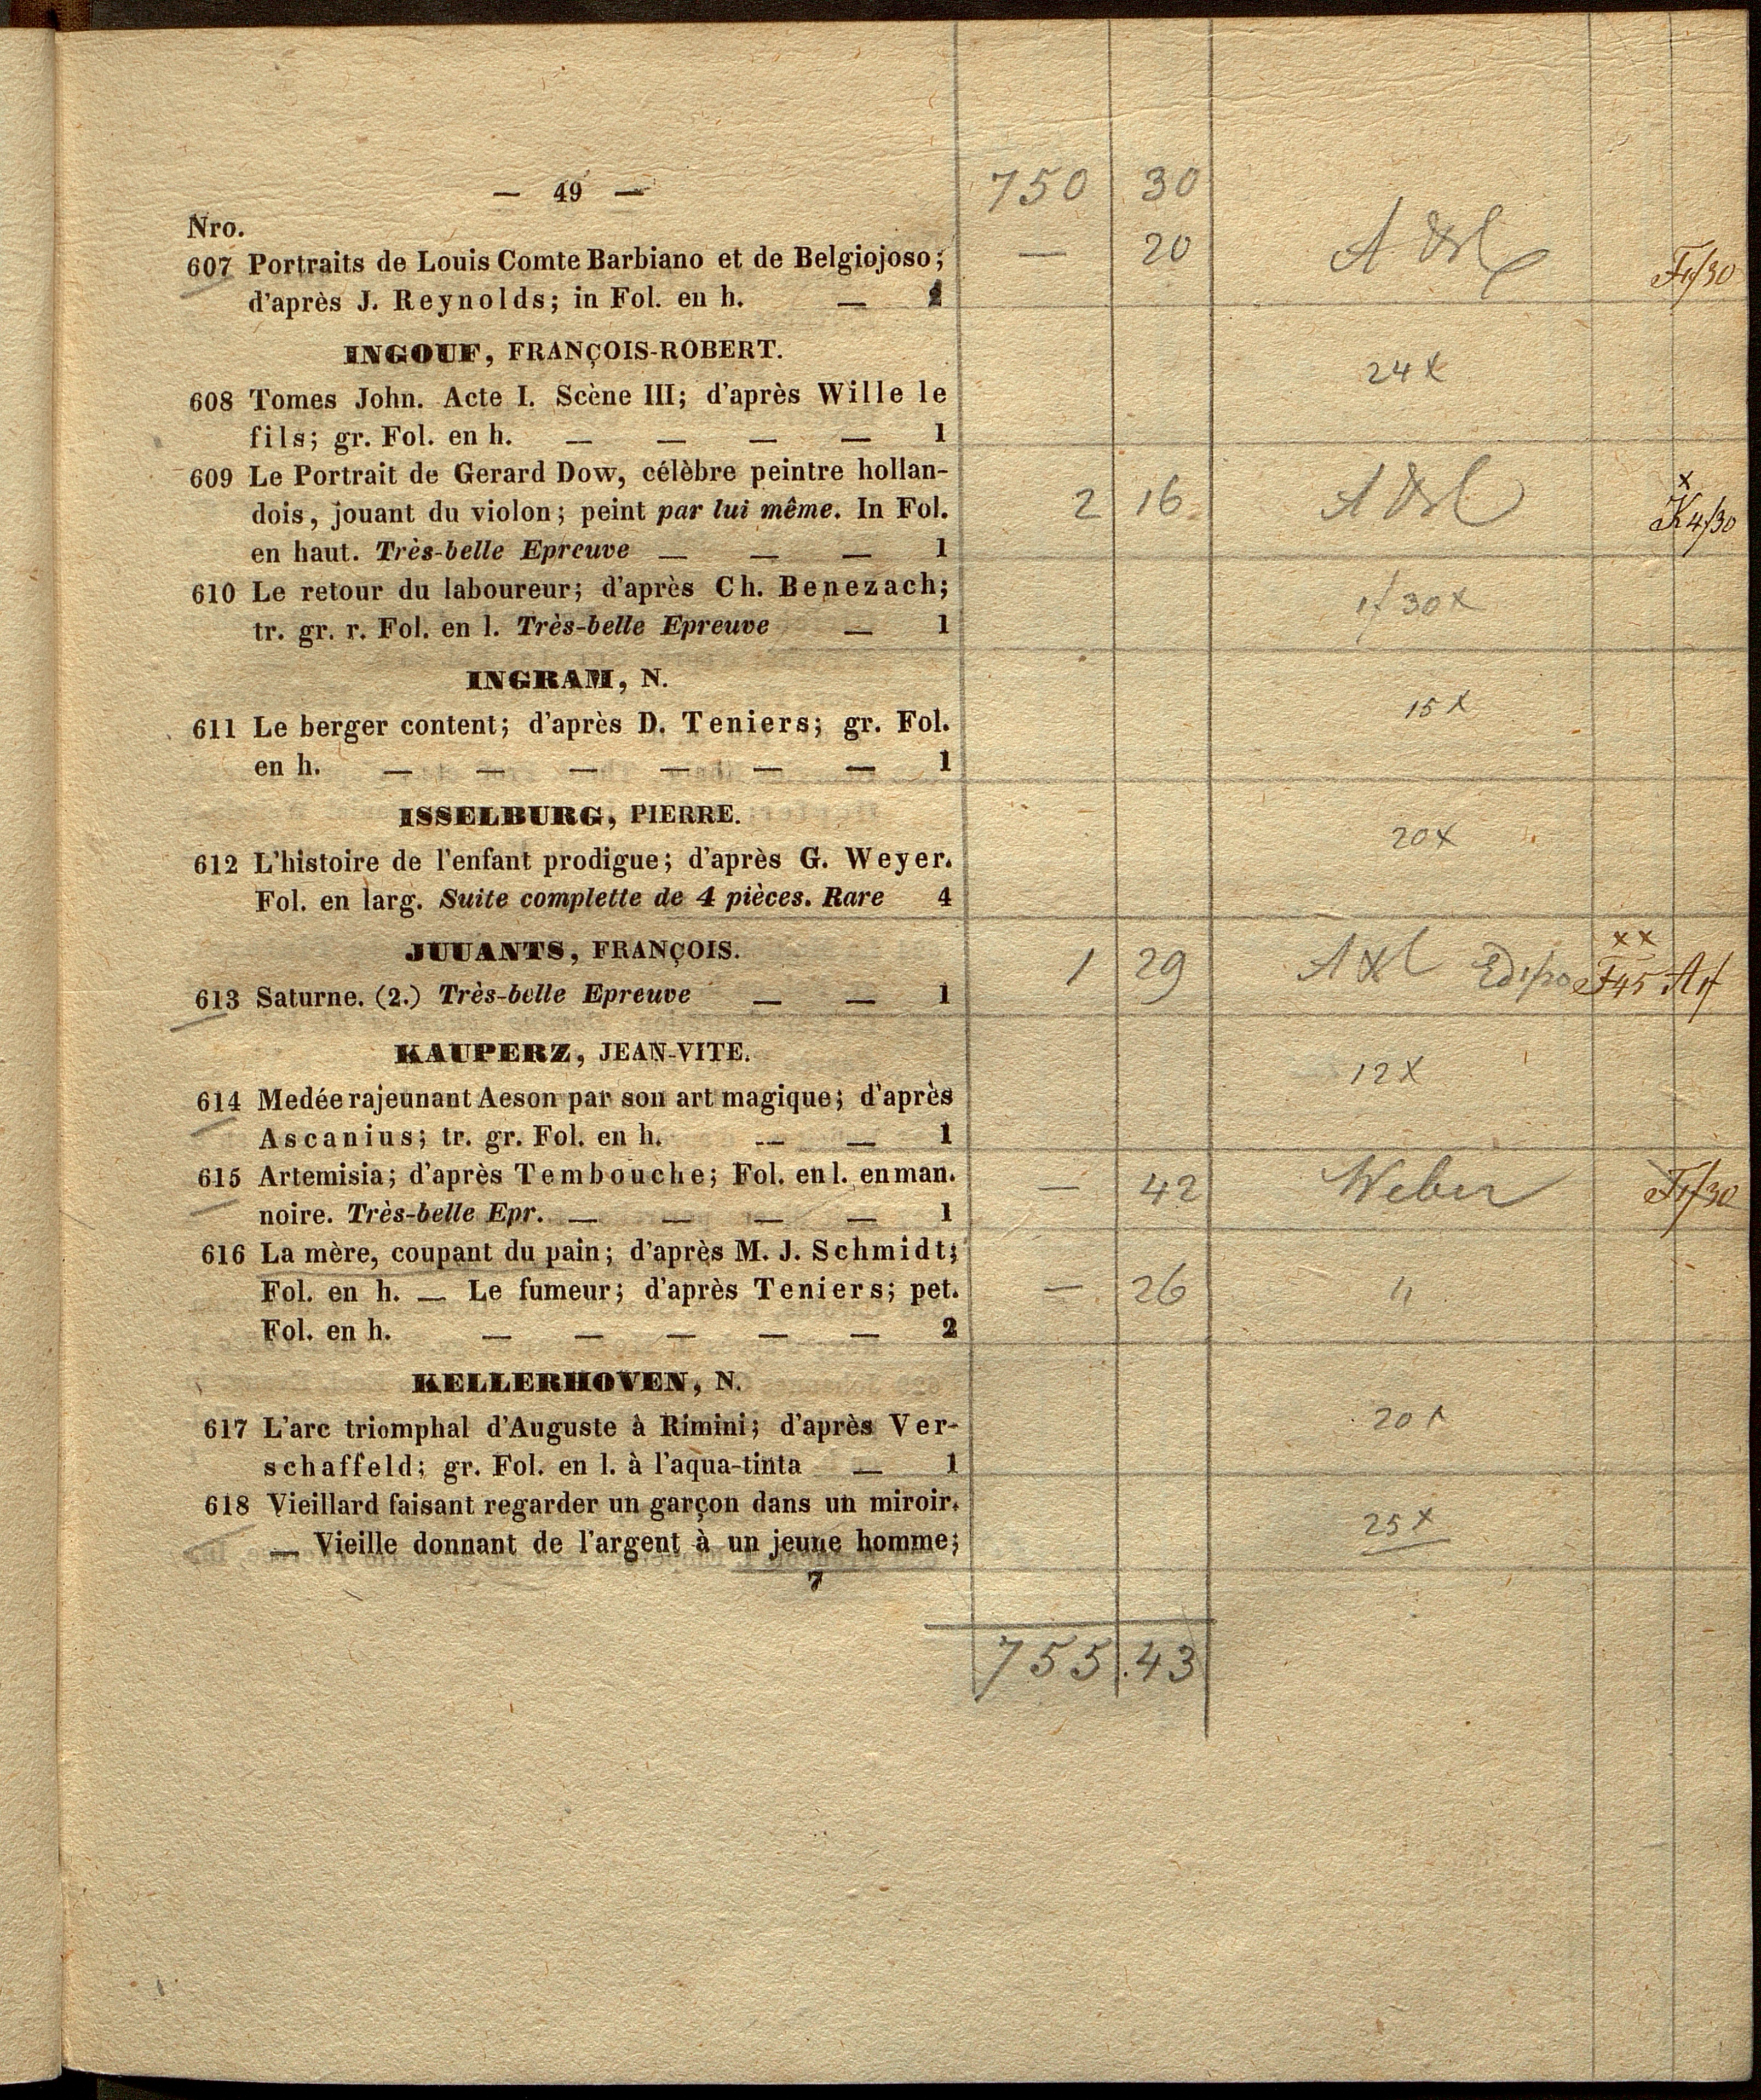 — 49 —
750 30
Nro.
607 Portraits de Louis Comte Barbiano et de Belgiojoso; — 20
d'après J. Reynolds; in Fol. en h. — 1
INGOUF, FRANÇOIS-ROBERT.
24 x
608 Tomes John. Acte I. Scène III; d'après Wille le
fils; gr. Fol. en h. — — — — 1
609 Le Portrait de Gerard Dow, célèbre peintre hollan-
dois, jouant du violon; peint par lui même. In Fol. 2 16 K4/30
en haut. Très-belle Epreuve — — — 1
610 Le retour du laboureur; d'après Ch. Benezach; 1f 30x
tr. gr. r. Fol. en l. Très-belle Epreuve — 1
INGRAM, N.
611 Le berger content; d'après D. Teniers; gr. Fol. 15 x
en h. — — — — — — 1
ISSELBURG, PIERRE.
20x
612 L'histoire de l'enfant prodigue; d'après G. Weyer.
Fol. en larg. Suite complette de 4 pièces. Rare 4
x x
JUUANTS, FRANÇOIS. 1 29
613 Saturne. (2.) Très-belle Epreuve — — 1
KAUPERZ, JEAN-VITE.
12 x
614 Medée rajeunant Aeson par son art magique; d'après
Ascanius; tr. gr. Fol. en h. — — 1
615 Artemisia; d'après Tembouche; Fol. en l. en man. — 42 Weber
noire. Très-belle Epr. — — — — 1
616 La mère, coupant du pain; d'après M. J. Schmidt;
Fol. en h. — Le fumeur; d'après Teniers; pet. — 26 "
Fol. en h. — — — — — 2
KELLERHOVEN, N.
617 L'arc triomphal d'Auguste à Rimini; d'après Ver- 20 x
schaffeld; gr. Fol. en l. à l'aqua-tinta — 1
618 Vieillard faisant regarder un garçon dans un miroir. 25 x
— Vieille donnant de l'argent à un jeune homme;
7
755.43